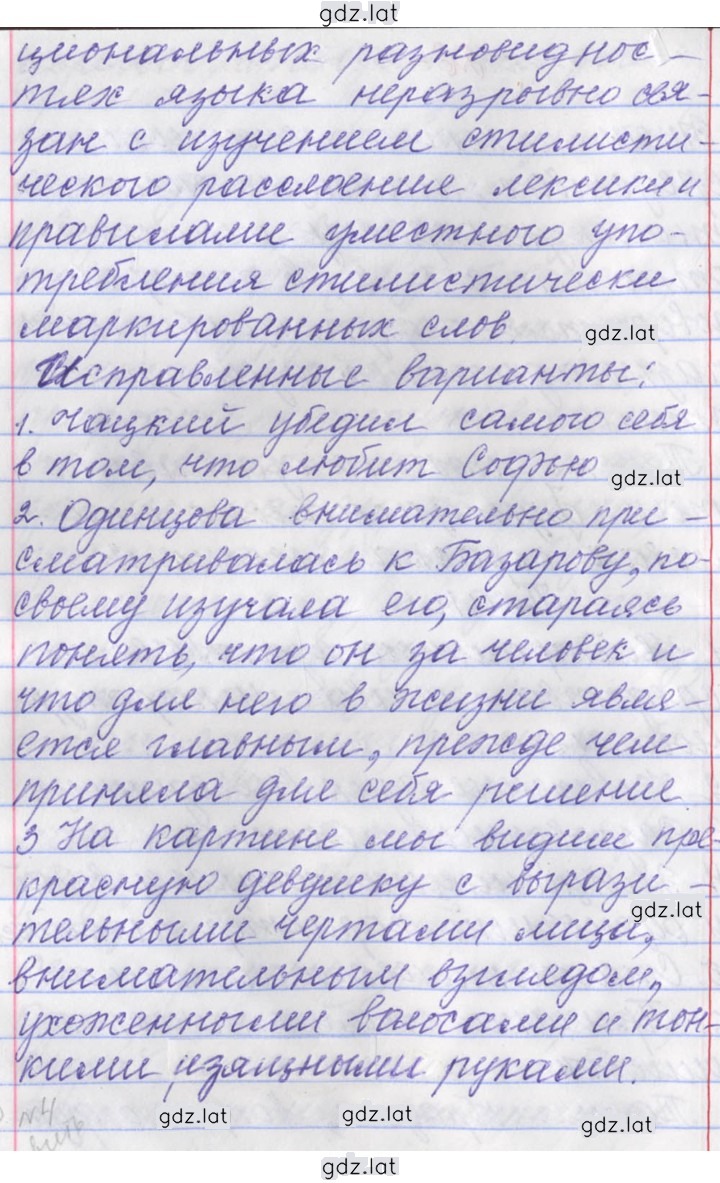 gdz.lat
циональных разновиднос-
тях языка неразрывно свя-
зан с изучением стилисти-
ческого расслоения лексики и
правилами уместного упо-
требления стилистически
маркированных слов. gdz.lat
Исправленные варианты:
1. Чацкий убедил самого себя
в том, что любит Софью gdz.lat
2. Одинцова внимательно при-
сматривалась к Базарову, по-
своему изучала его, стараясь
понять, что он за человек и
что для него в жизни явля-
ется главным, прежде чем
приняла для себя решение.
3 На картине мы видим пре-
красную девушку с вырази-
gdz.lat
тельными чертами лица,
внимательным взглядом,
ухоженными волосами и тон-
кими изящными руками.
№4
gdz.lat gdz.lat gdz.lat
gdz.lat